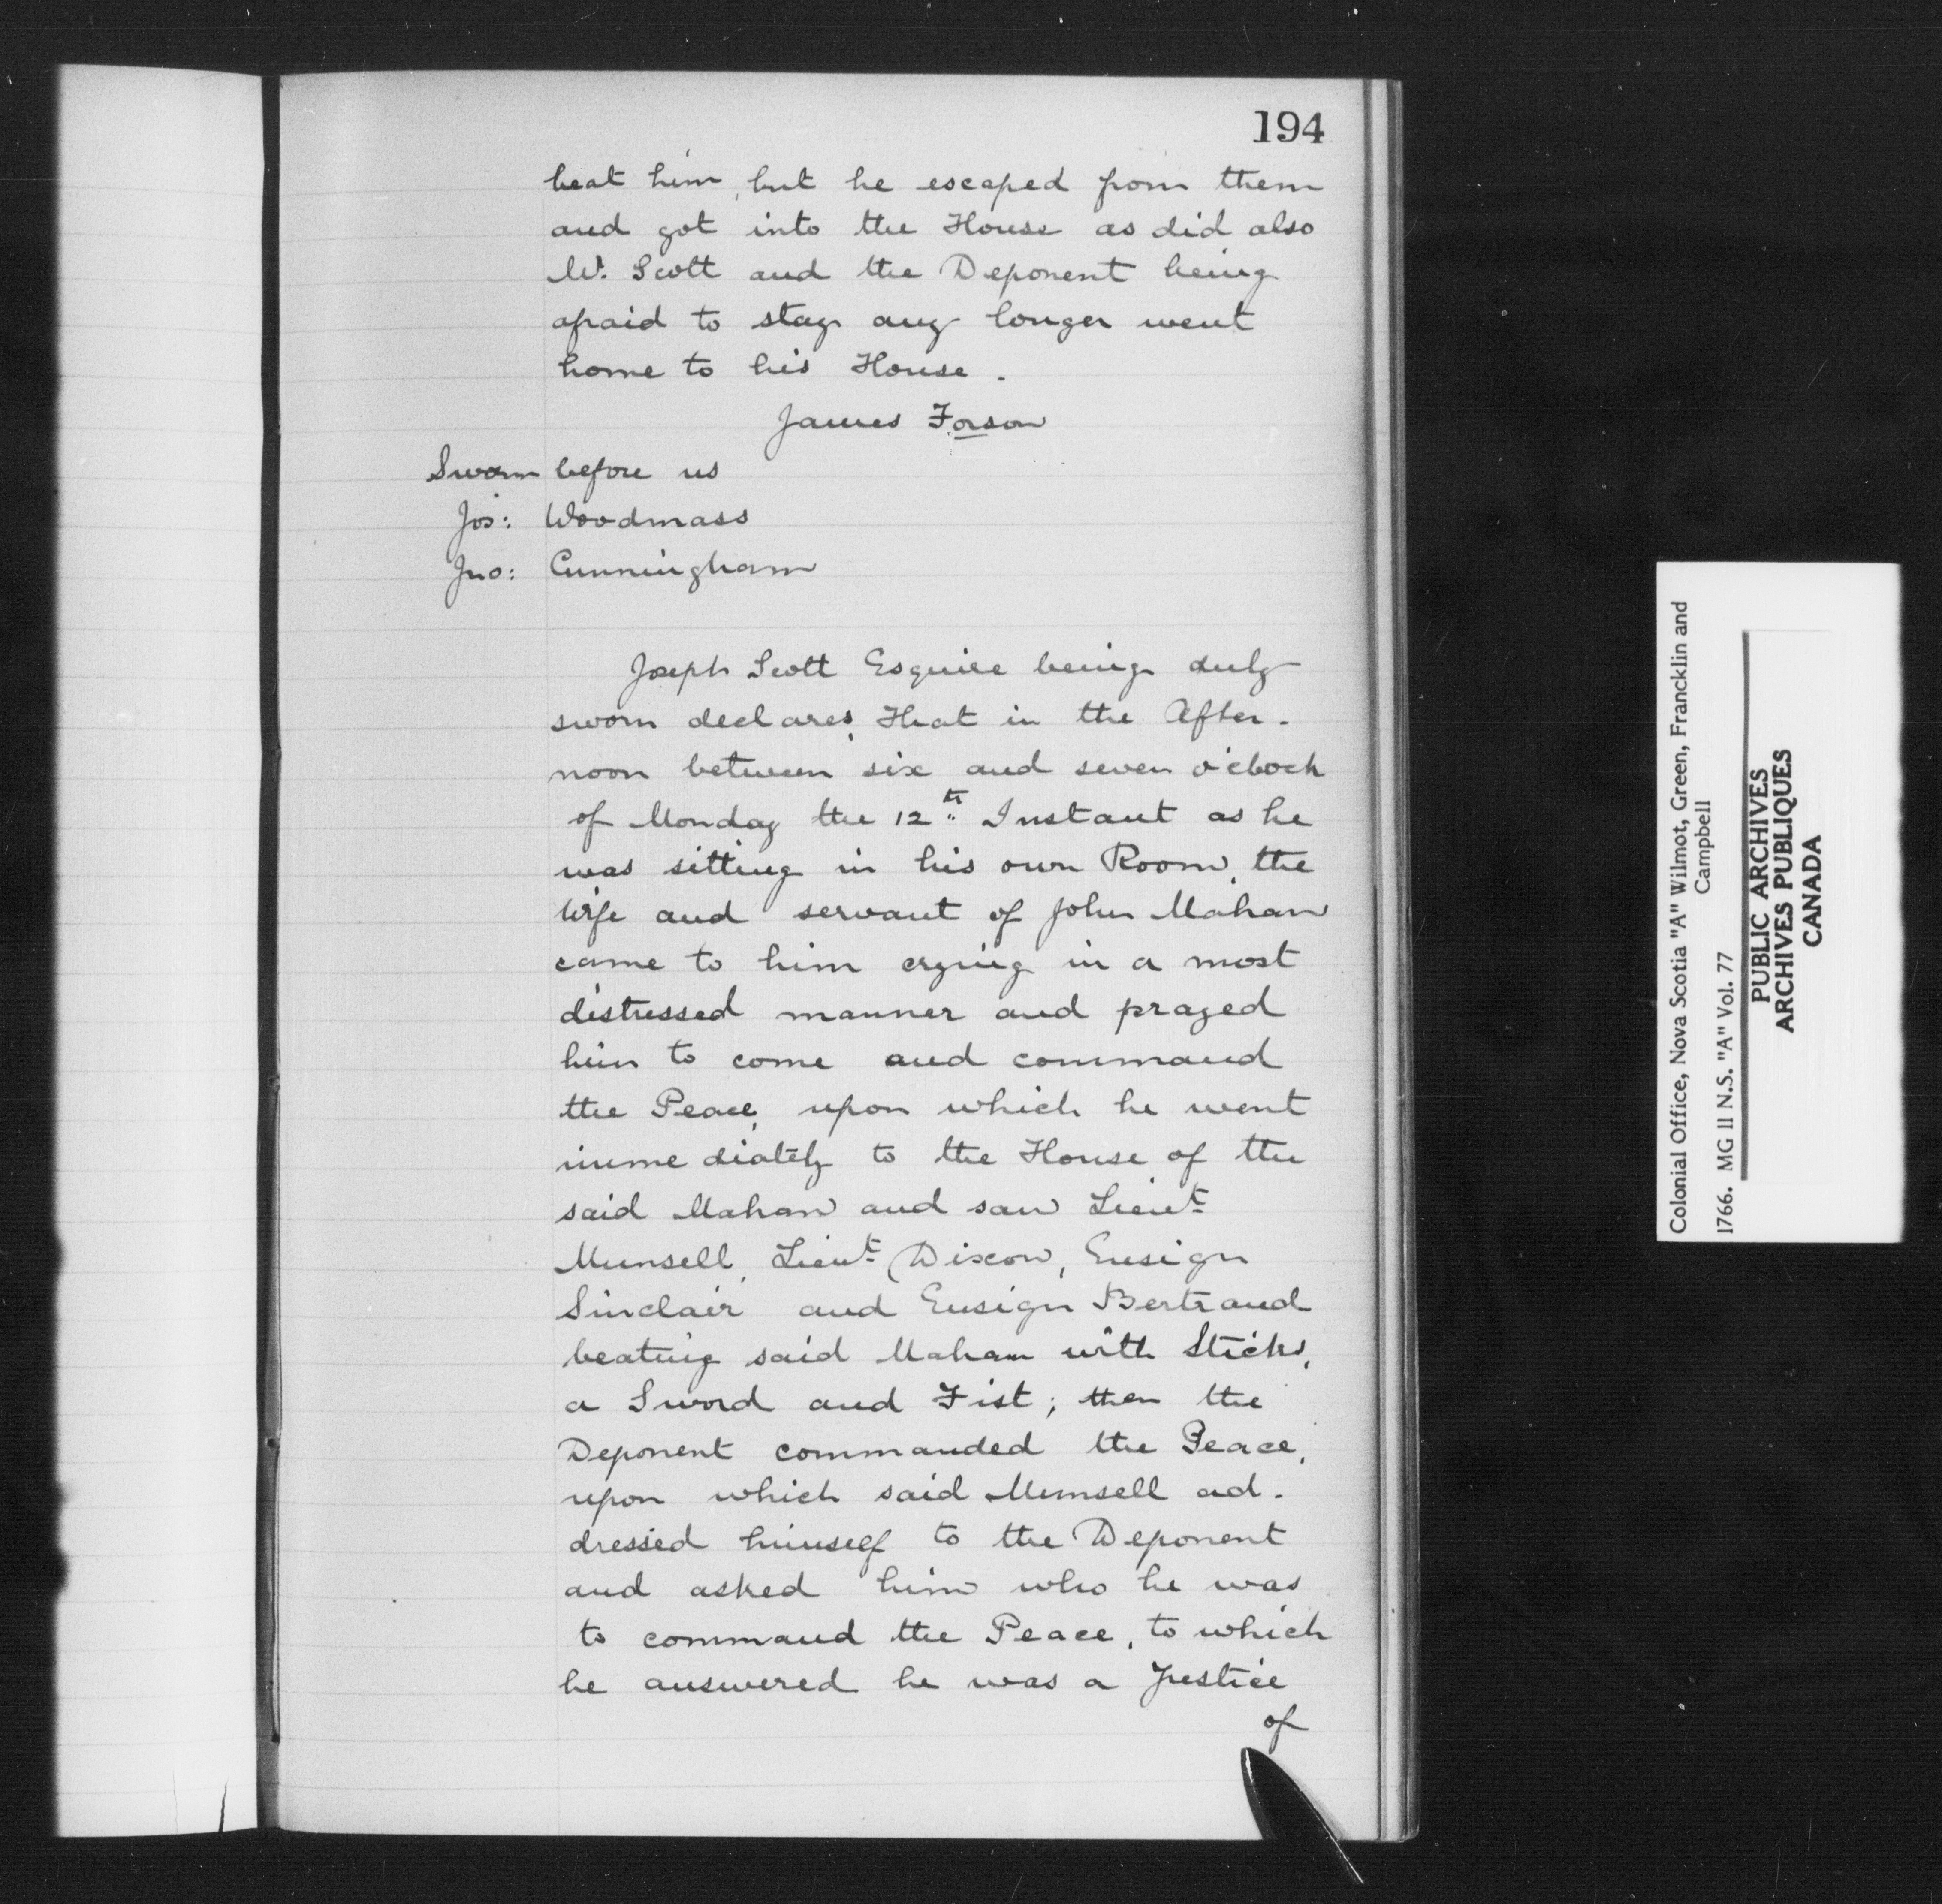 194
beat him, but he escaped from them
and got into the House as did also
Mr. Scott and the Deponent being
afraid to stay any longer went
home to his House.
James Forson
Sworn before us
Jos: Woodmass
Jno: Cunningham
Joseph Scott Esquire being duly
sworn declares, That in the After-
noon between six and seven o'clock
of Monday the 12th Instant as he
was sitting in his own Room, the
Wife and servant of John Mahan
came to him crying in a most
distressed manner and prayed
him to come and command
the Peace, upon which he went
immediately to the House of the
said Mahan and saw Lieut
Munsell, Lieut Dixon, Ensign
Sinclair and Ensign Bertrand
beating said Mahan with Sticks,
a Sword and Fist; then the
Deponent commanded the Peace,
upon which said Munsell ad-
dressed himself to the Deponent
and asked him who he was
to command the Peace, to which
he answered he was a Justice
of
Colonial Office, Nova Scotia "A" Wilmot, Green, Francklin and
Campbell
1766. MG 11 N.S. "A" Vol. 77
PUBLIC ARCHIVES
ARCHIVES PUBLIQUES
CANADA